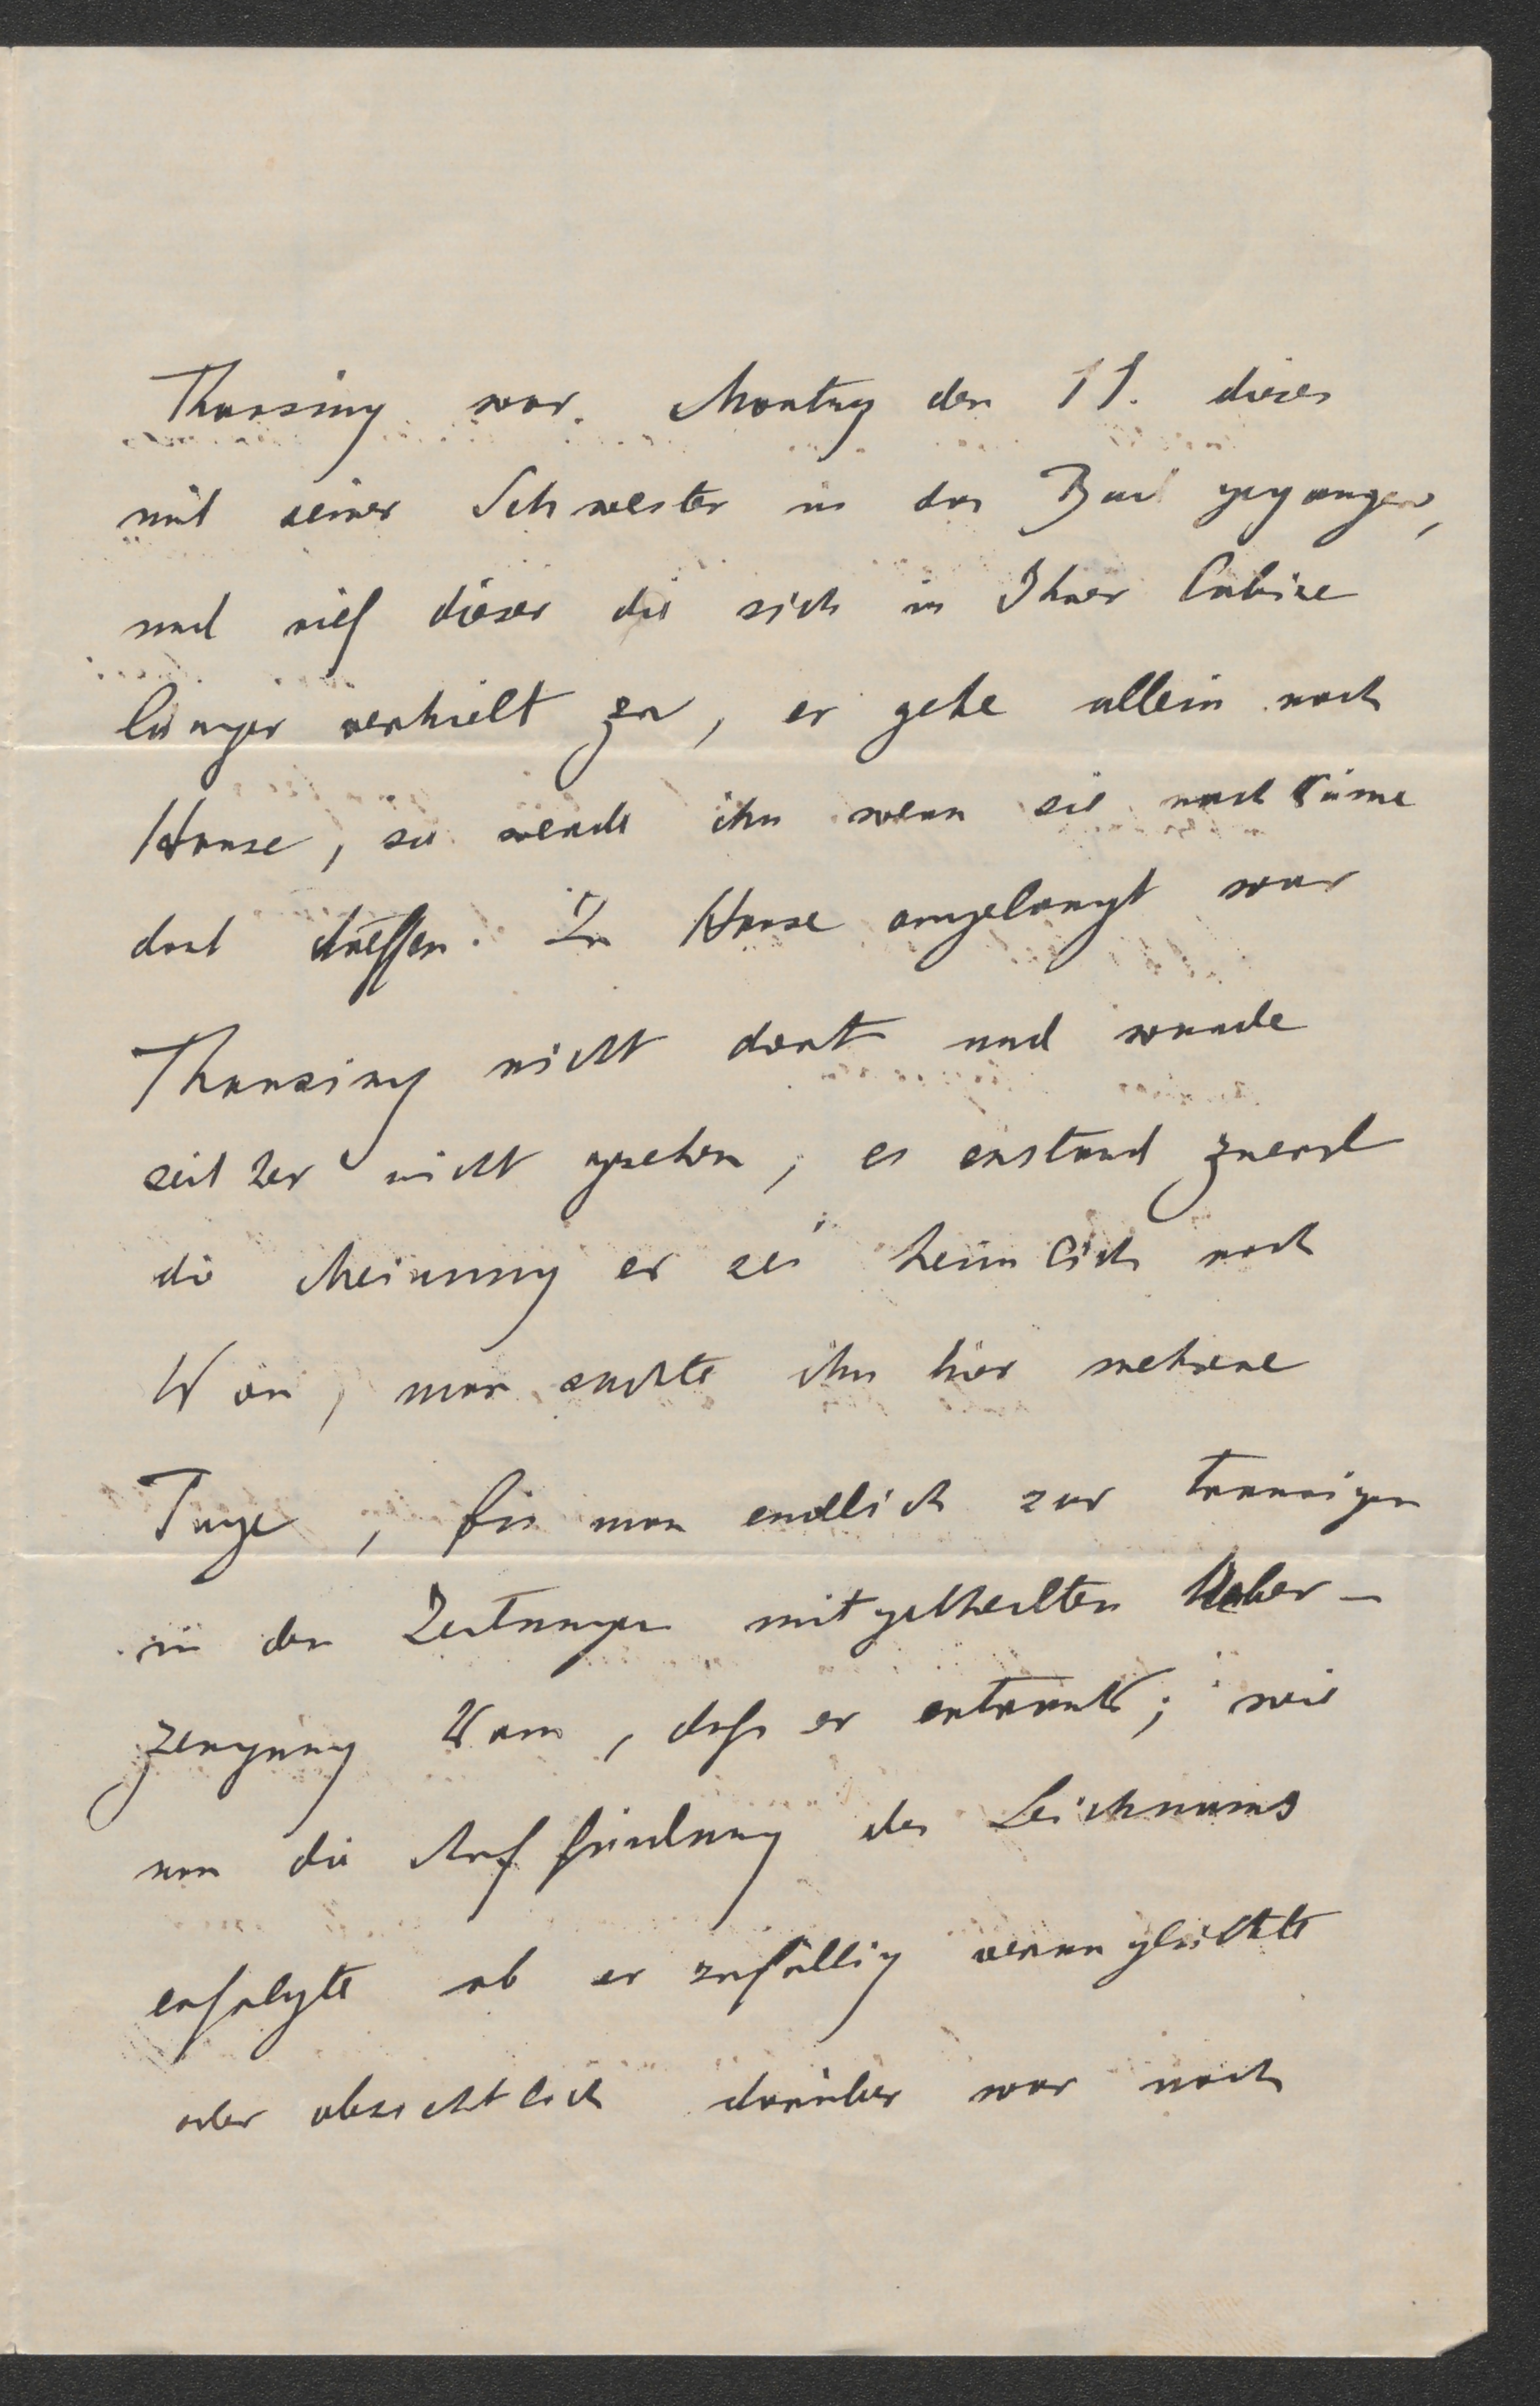 Thausing war Montag den 11. dieses
mit seiner Schwester in das Bad gegangen,
und rief dieser die sich in Ihrer Cabine
länger verhielt zu, er gehe allein nach
Hause, sie werde ihn wenn sie nachkäme
dort treffen. Zu Hause angelangt war
Thausing nicht dort und wurde
seither nicht gesehen, es enstand zuerst
die Meinung er sei heimlich nach
Wien, man suchte ihn hier mehrere
Tage, bis man endlich zur traurigen
in den Zeitungen mitgetheilten Ueber-
zeugung kam, dass er ertrank; wie
nun die Auffindung des Leichnams
erfolgte ob er zufällig verunglückte
oder absichtlich darüber war noch